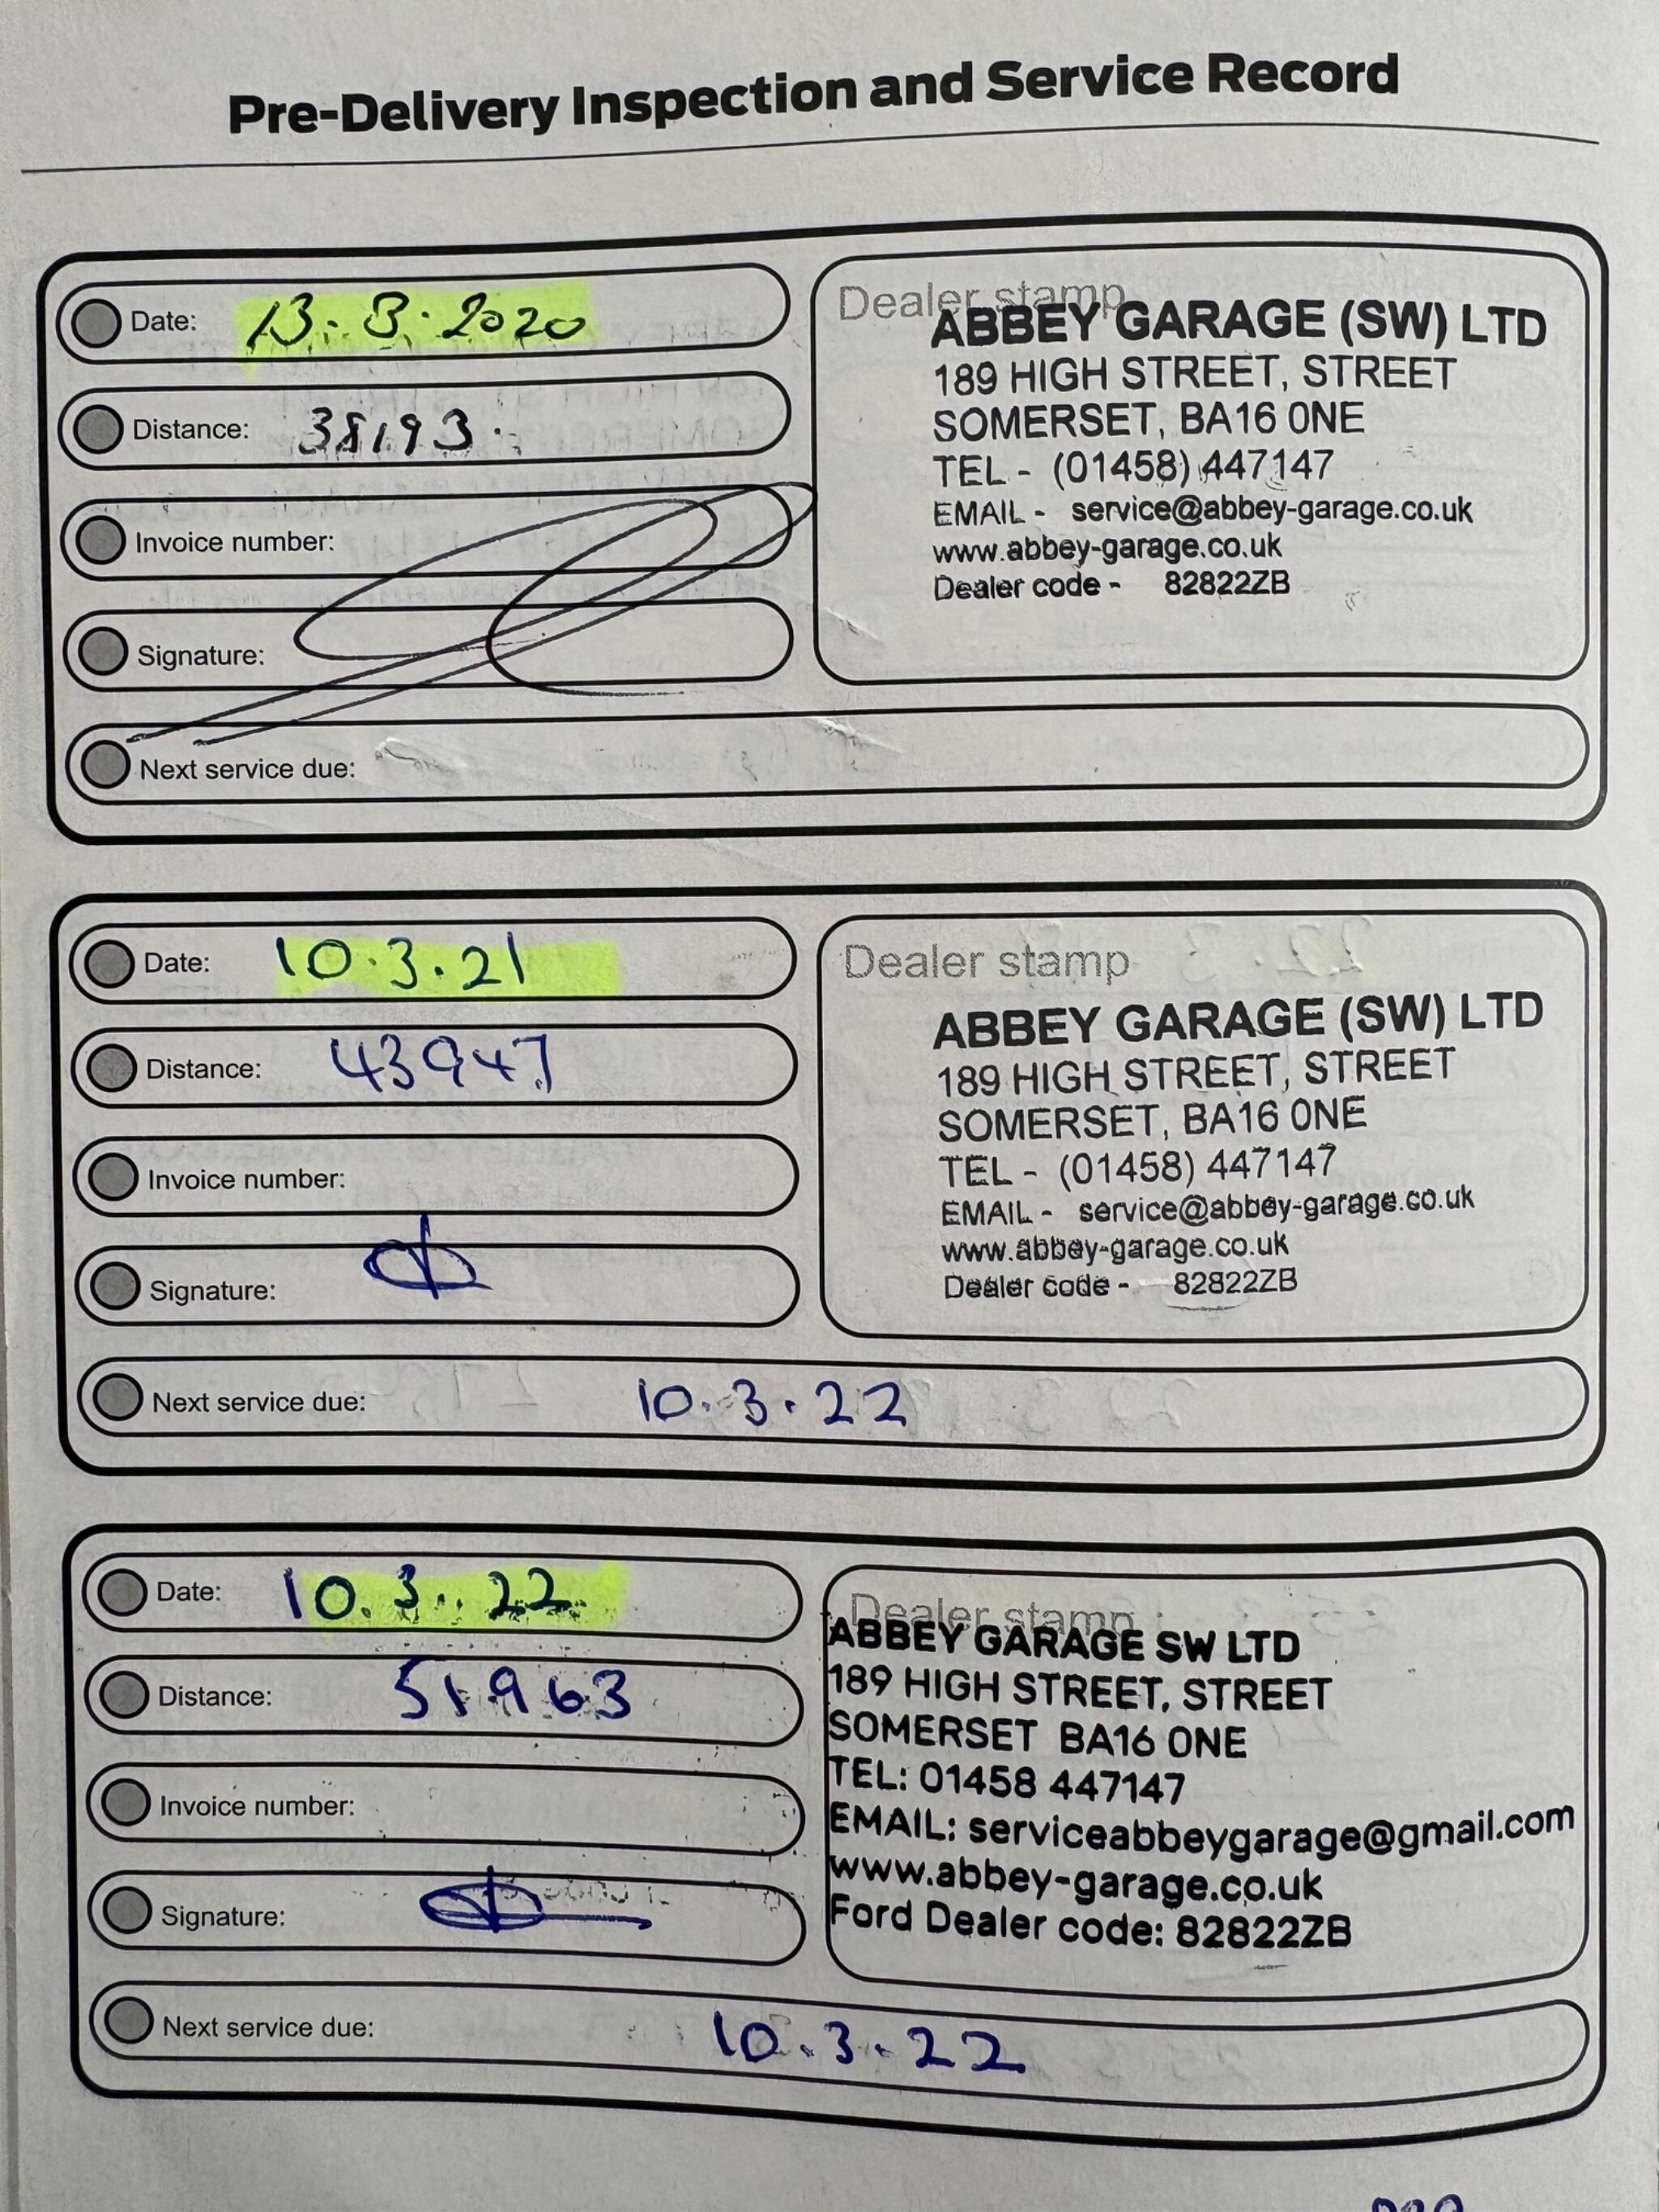 Pre-Delivery Inspection and Service Record
Date: 13.3.2020
Distance: 38193.
Invoice number:
Signature:
Next service due:
Dealer stamp
ABBEY GARAGE (SW) LTD
189 HIGH STREET, STREET
SOMERSET, BA16 0NE
TEL - (01458) 447147
EMAIL - service@abbey-garage.co.uk
www.abbey-garage.co.uk
Dealer code - 82822ZB
Date: 10.3.21
Distance: 43947
Invoice number:
Signature:
Next service due: 10.3.22
Dealer stamp
ABBEY GARAGE (SW) LTD
189 HIGH STREET, STREET
SOMERSET, BA16 0NE
TEL - (01458) 447147
EMAIL - service@abbey-garage.co.uk
www.abbey-garage.co.uk
Dealer code - 82822ZB
Date: 10.3.22
Distance: 51963
Invoice number:
Signature:
Next service due: 10.3.22
Dealer stamp
ABBEY GARAGE SW LTD
189 HIGH STREET, STREET
SOMERSET BA16 0NE
TEL: 01458 447147
EMAIL: serviceabbeygarage@gmail.com
www.abbey-garage.co.uk
Ford Dealer code: 82822ZB